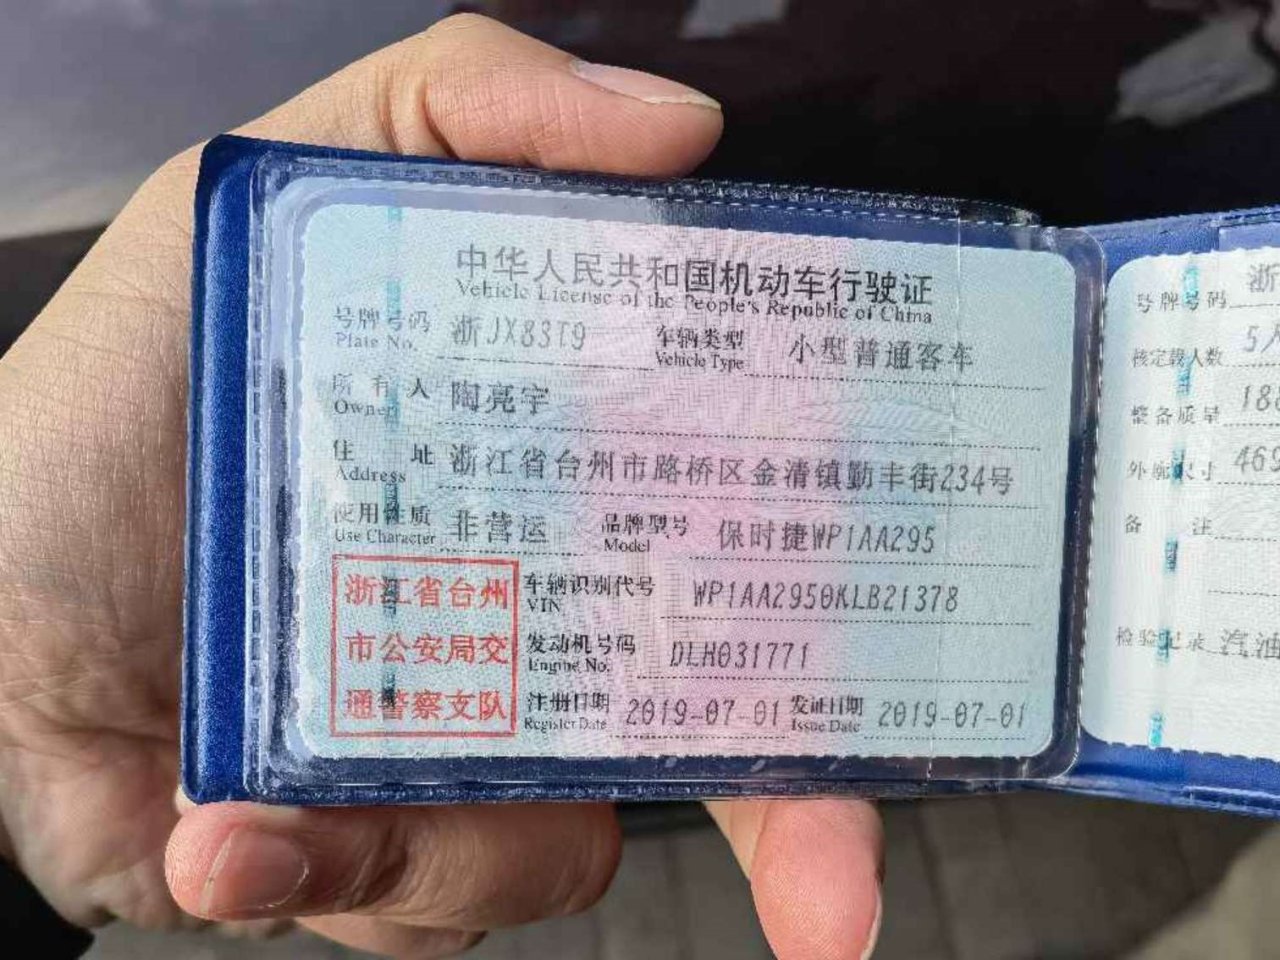 中华人民共和国机动车行驶证
Vehicle License of the People's Republic of China
号牌号码 浙JX83T9 车辆类型 小型普通客车
Plate No. Vehicle Type
所有人 陶亮宇
Owner
住址 浙江省台州市路桥区金清镇勤丰街234号
Address
使用性质 非营运 品牌型号 保时捷WP1AA295
Use Character Model
浙江省台州
市公安局交
通警察支队
车辆识别代号 WP1AA2950KLB21378
VIN
发动机号码 DLH031771
Engine No.
注册日期 2019-07-01 发证日期 2019-07-01
Register Date Issue Date
号牌号码 浙
核定载人数 5人
整备质量 188
外廓尺寸 469
备注
检验记录 汽油